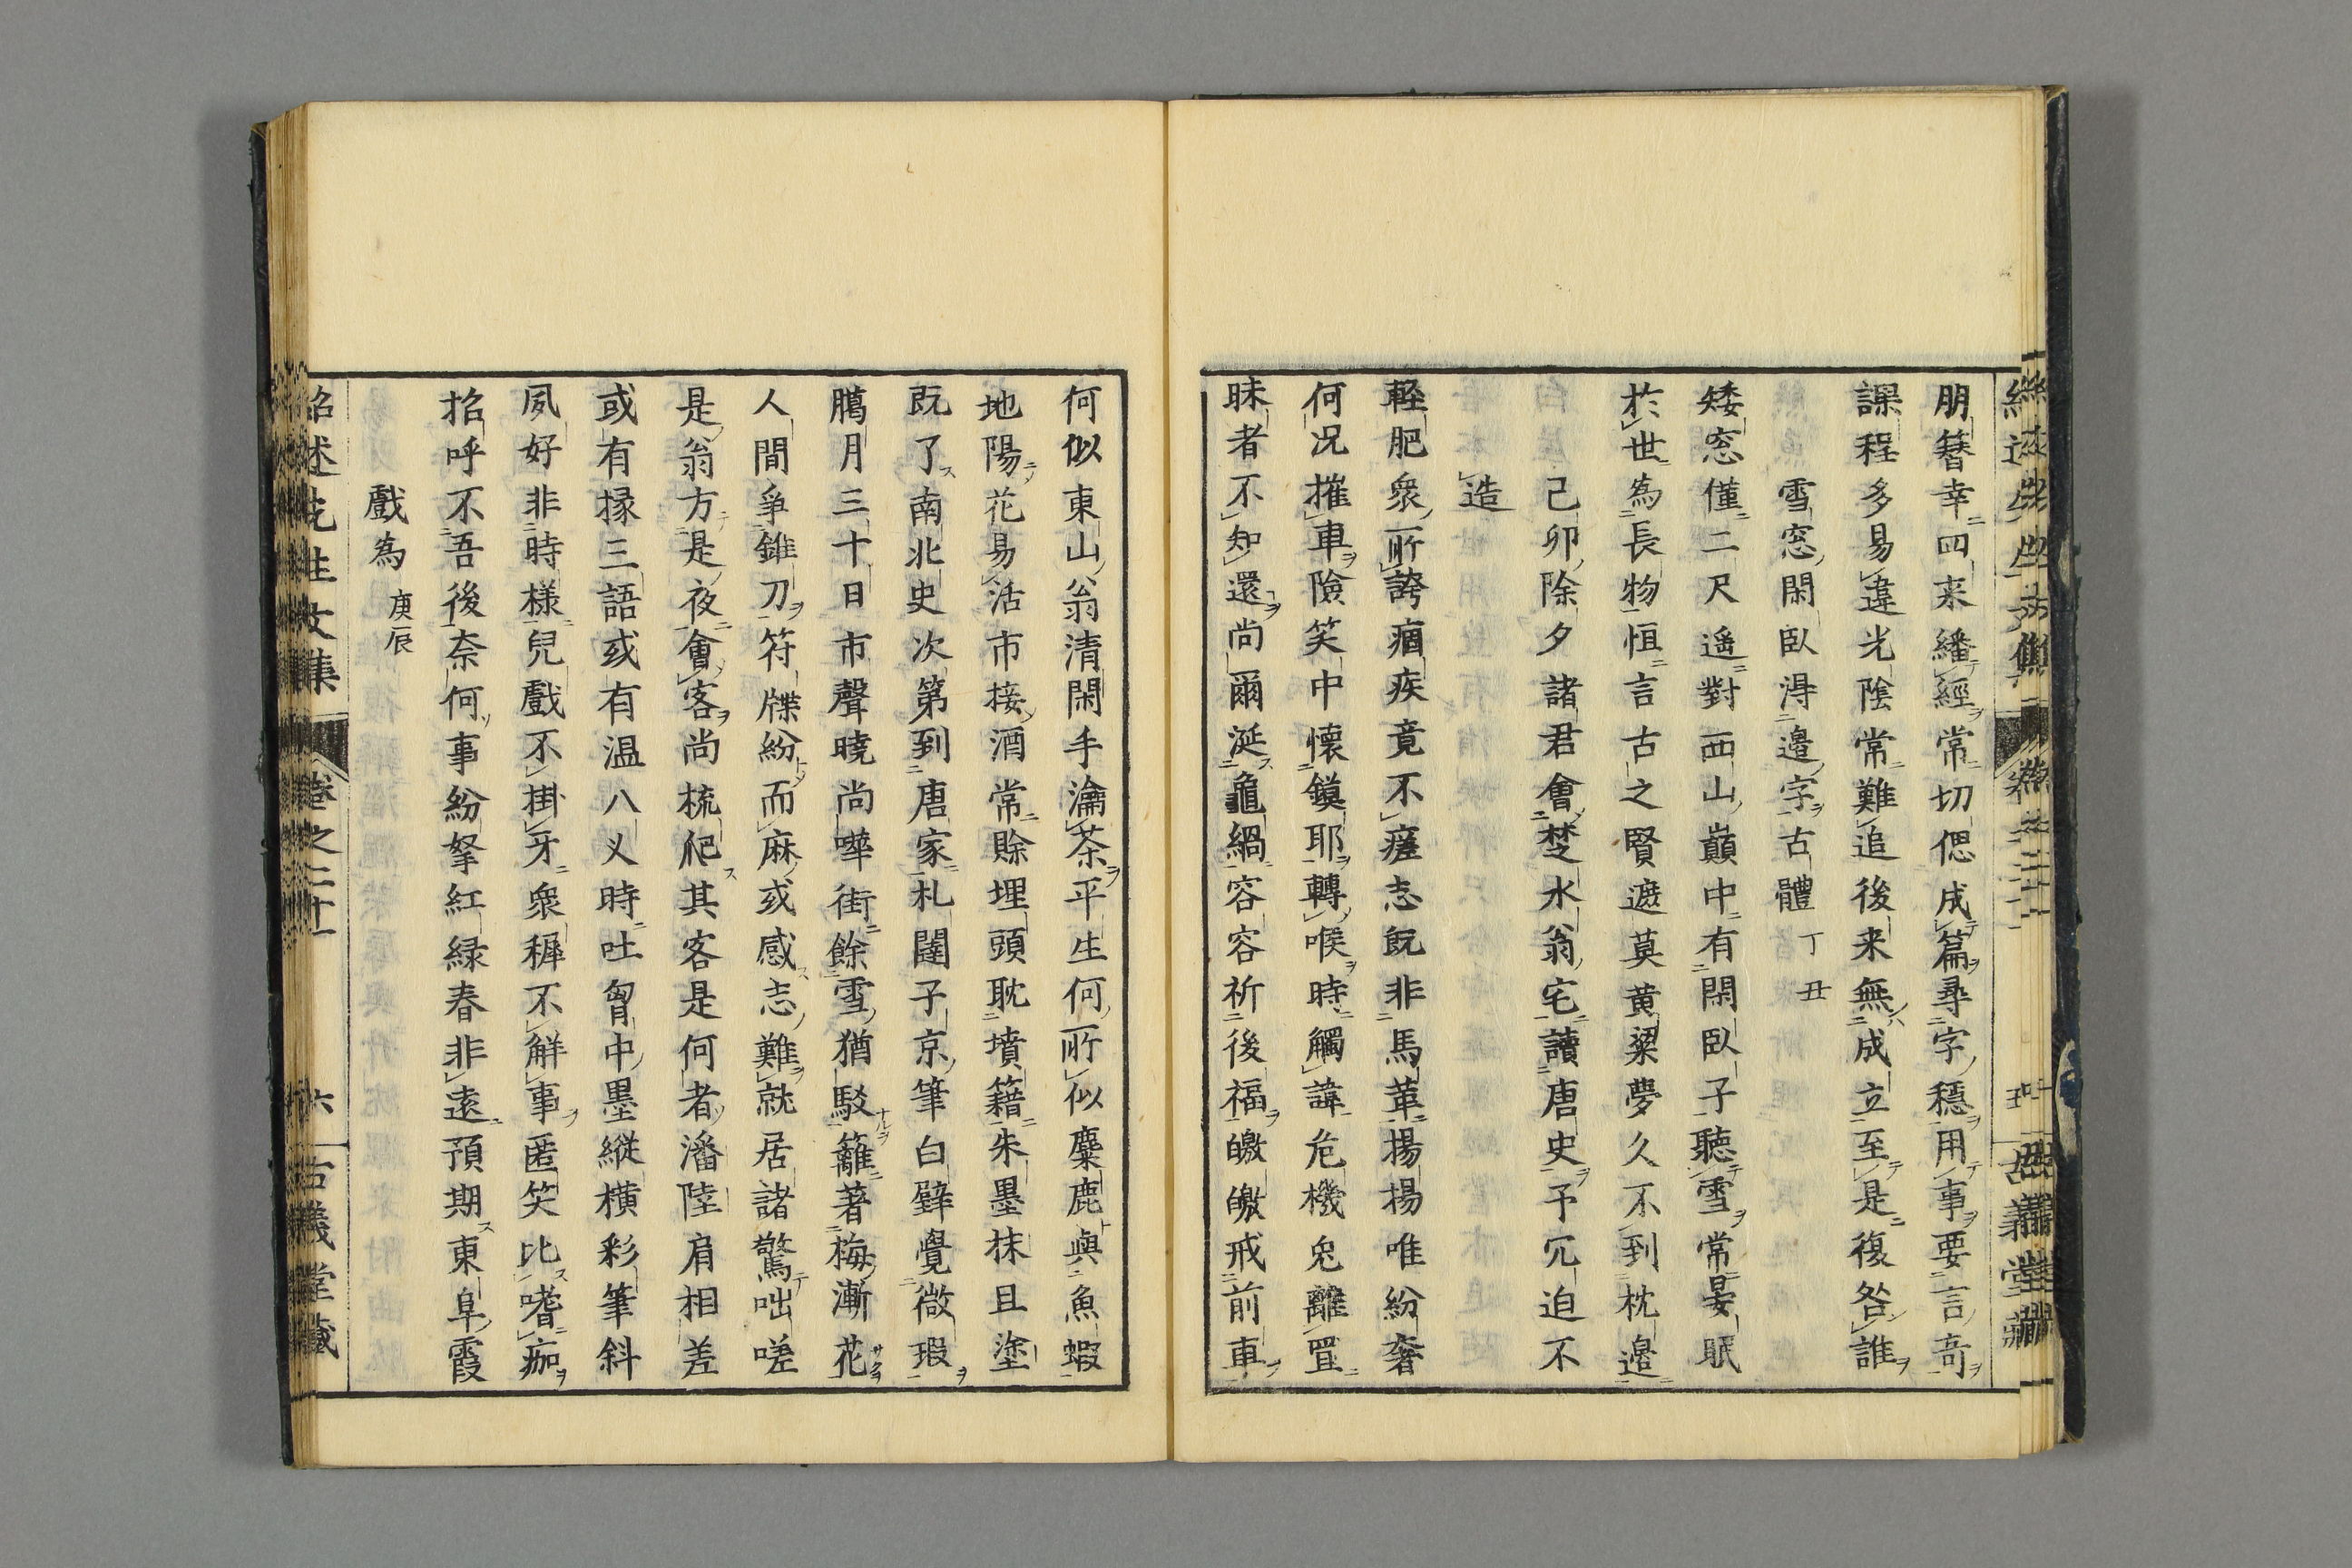 朋簪幸四来繙經常切偲成篇尋字穩用事要言奇
課程多易違光陰常難追後来無成立至是復咎誰
雪窓閑臥得邉字古體 丁丑
矮窓僅二尺遙對西山巔中有閑臥子聽雪常晏眠
於世為長物恒言古之賢遮莫黄粱夢久不到枕邉
己卯除夕諸君會楚水翁宅讀唐史予冗迫不
造
軽肥衆所誇痼疾竟不瘥志既非馬革揚揚唯紛奢
何况摧車險笑中懷鏌耶轉喉時觸諱危機兔離罝
昧者不知還尚爾涎龜緺容容祈後福皦皦戒前車
何似東山翁清閑手瀹茶平生何所似麋鹿與魚蝦
地陽花易活市接酒常賒埋頭耽墳籍朱墨抹且塗
既了南北史次第到唐家札闥子京筆白璧覺微瑕
臈月三十日市聲曉尚嘩街餘雪猶駁籬著梅漸花
人間爭錐刀符牒紛而麻或感志難就居諸驚咄嗟
是翁方是夜會客尚梳爬其客是何者潘陸肩相差
或有掾三語或有温八义時吐胷中墨縦横彩筆斜
夙好非時樣兒戲不掛牙衆穉不觧事匿笑比嗜痂
招呼不吾後奈何事紛拏紅緑春非遠預期東阜霞
戲為 庚辰
紹述先生文集 卷之二十一 六 古義堂藏